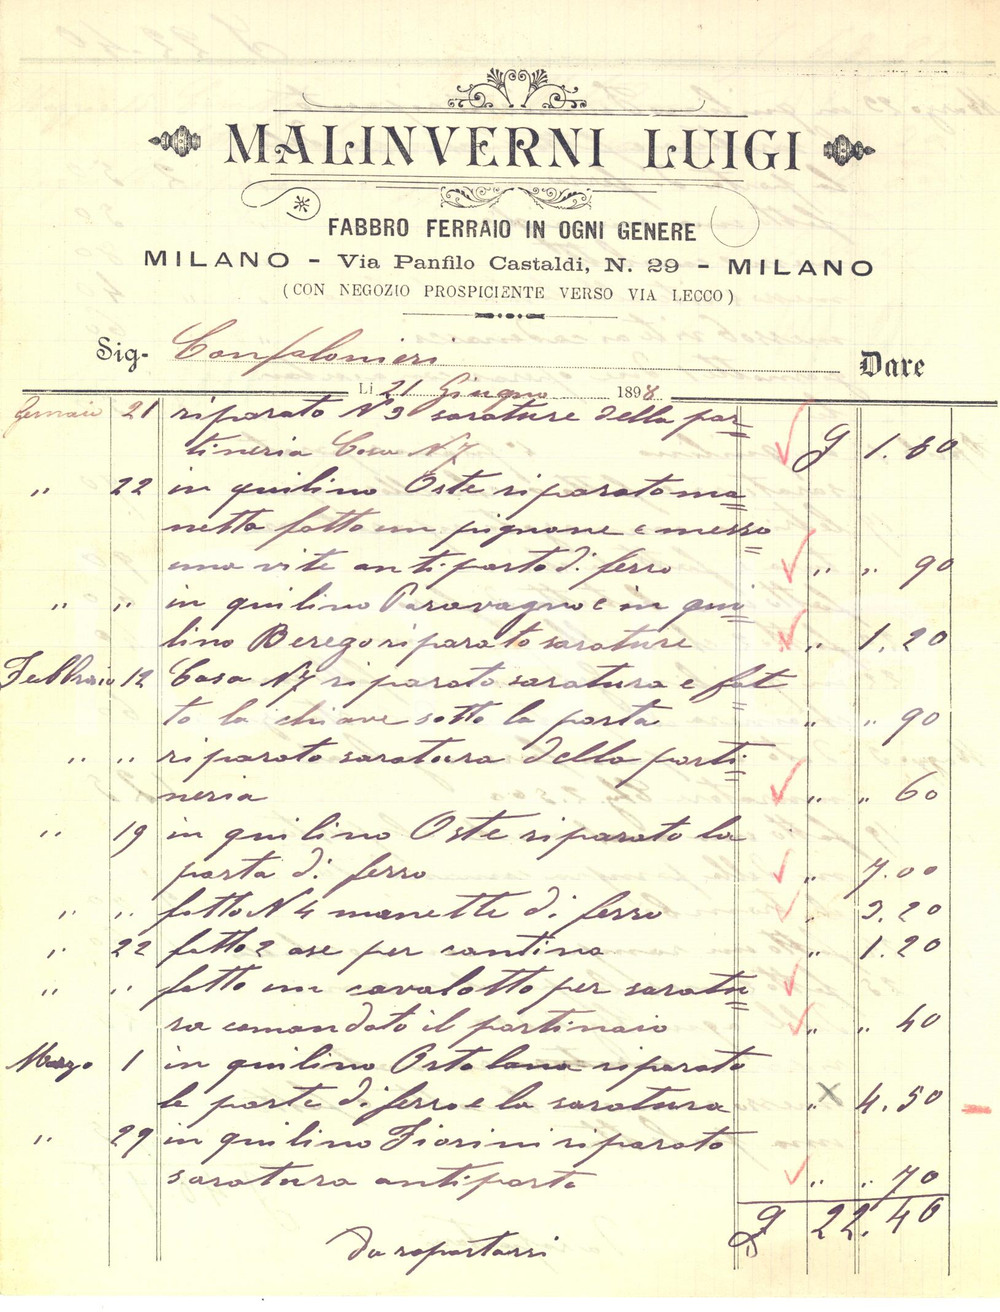 MALINVERNI LUIGI
FABBRO FERRAIO IN OGNI GENERE
MILANO - Via Panfilo Castaldi, N. 29 - MILANO
(CON NEGOZIO PROSPICIENTE VERSO VIA LECCO)
Sig- Confalonieri Dare
Li 21 Giugno 1898
Gennaio 21 riparato N 2 sarature della por=
tineria Casa N 7 £ 1.80
" 22 in quilino Oste riparato ma=
netta fatto un pignone e messo
una vite antiporto di ferro " " 90
" " in quilino Paravagno e in qui=
lino Berego riparato sarature " 1.20
Febbraio 12 Casa N 7 riparato saratura e fat=
to la chiave sotto la porta " " 90
" " riparato saratura della porti=
neria " " 60
" 19 in quilino Oste riparato la
porta di ferro " 7.00
" " fatto N 4 manette di ferro " 3.20
" 22 fatto 2 ase per cantina " 1.20
" " fatto un cavalotto per saratu=
ra comandato il portinaio " " 40
Marzo 1 in quilino Ortolana riparato
le porte di ferro e la saratura " 4.50
" 29 in quilino Fiorini riparato
saratura antiporto " " 70
£ 22.40
Da riportarsi